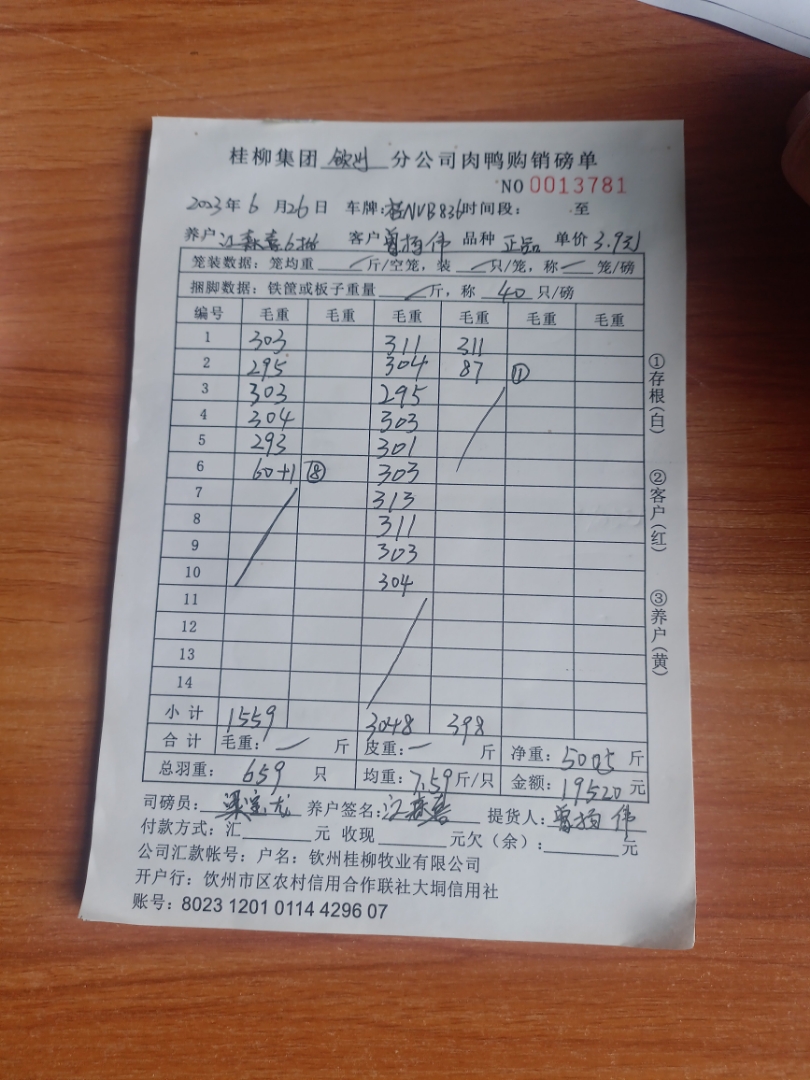 桂柳集团 钦州 分公司肉鸭购销磅单
NO 0013781
2023年 6 月 26 日 车牌: NVB836 时间段: 至
养户 江森喜6批 客户 曾扬伟 品种 正品 单价 3.9元
笼装数据: 笼均重 斤/空笼, 装 只/笼, 称 笼/磅
捆脚数据: 铁筐或板子重量 斤, 称 40 只/磅
编号 毛重 毛重 毛重 毛重 毛重 毛重
1 303 311 311
2 295 304 87 ⑪
3 303 295
4 304 303
5 293 301
6 60+1 ⑧ 303
7 313
8 311
9 303
10 304
11
12
13
14
小计 1559 3048 398
合计 毛重: 一 斤 皮重: 一 斤 净重: 5005 斤
总羽重: 659 只 均重: 7.59 斤/只 金额: 19520 元
司磅员: 梁宝龙 养户签名: 江森喜 提货人: 曾扬伟
付款方式: 汇 元 收现 元欠(余): 元
公司汇款帐号: 户名: 钦州桂柳牧业有限公司
开户行: 饮州市区农村信用合作联社大垌信用社
账号: 8023 1201 0114 4296 07
①存根(白)
②客户(红)
③养户(黄)